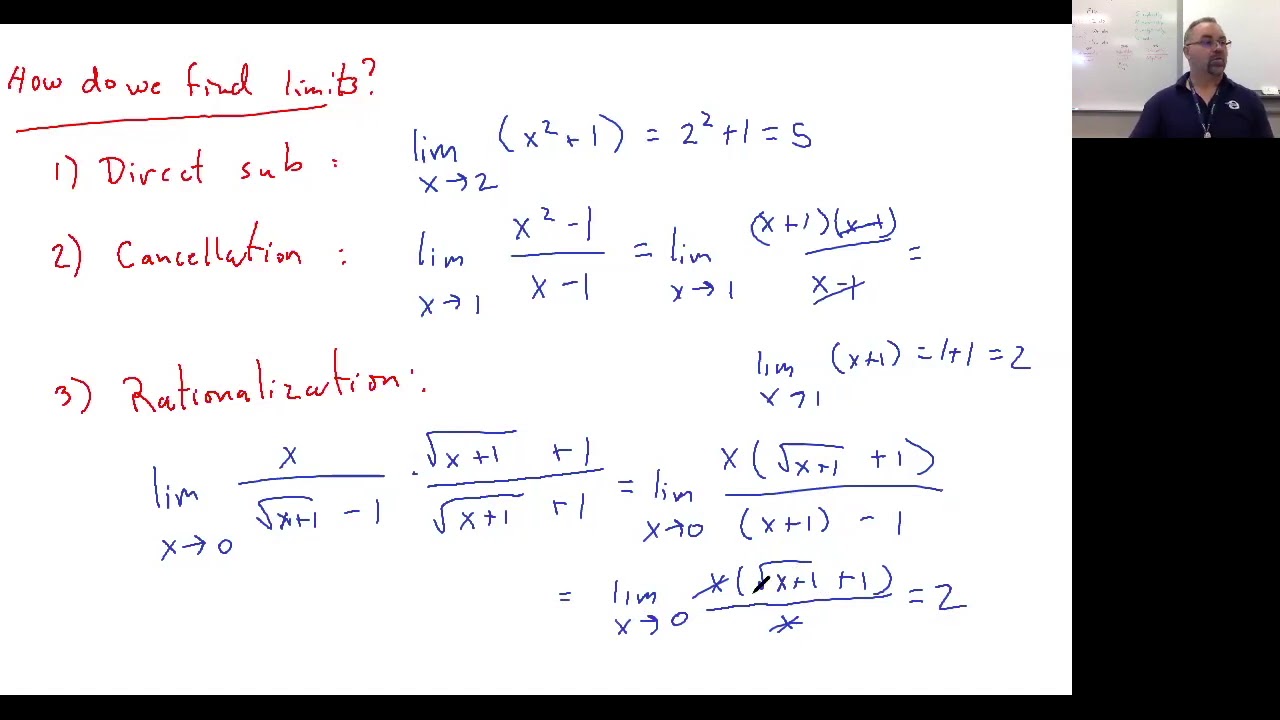 How do we find limits?
1) Direct sub : lim x→2 (x²+1) = 2²+1 = 5
2) Cancellation : lim x→1 (x²-1)/(x-1) = lim x→1 (x+1)(x-1)/(x-1) =
lim x→1 (x+1) = 1+1 = 2
3) Rationalization :
lim x→0 x/(√(x+1) - 1) · (√(x+1) + 1)/(√(x+1) + 1) = lim x→0 x(√(x+1) + 1)/((x+1) - 1)
= lim x→0 x(√(x+1) + 1)/x = 2